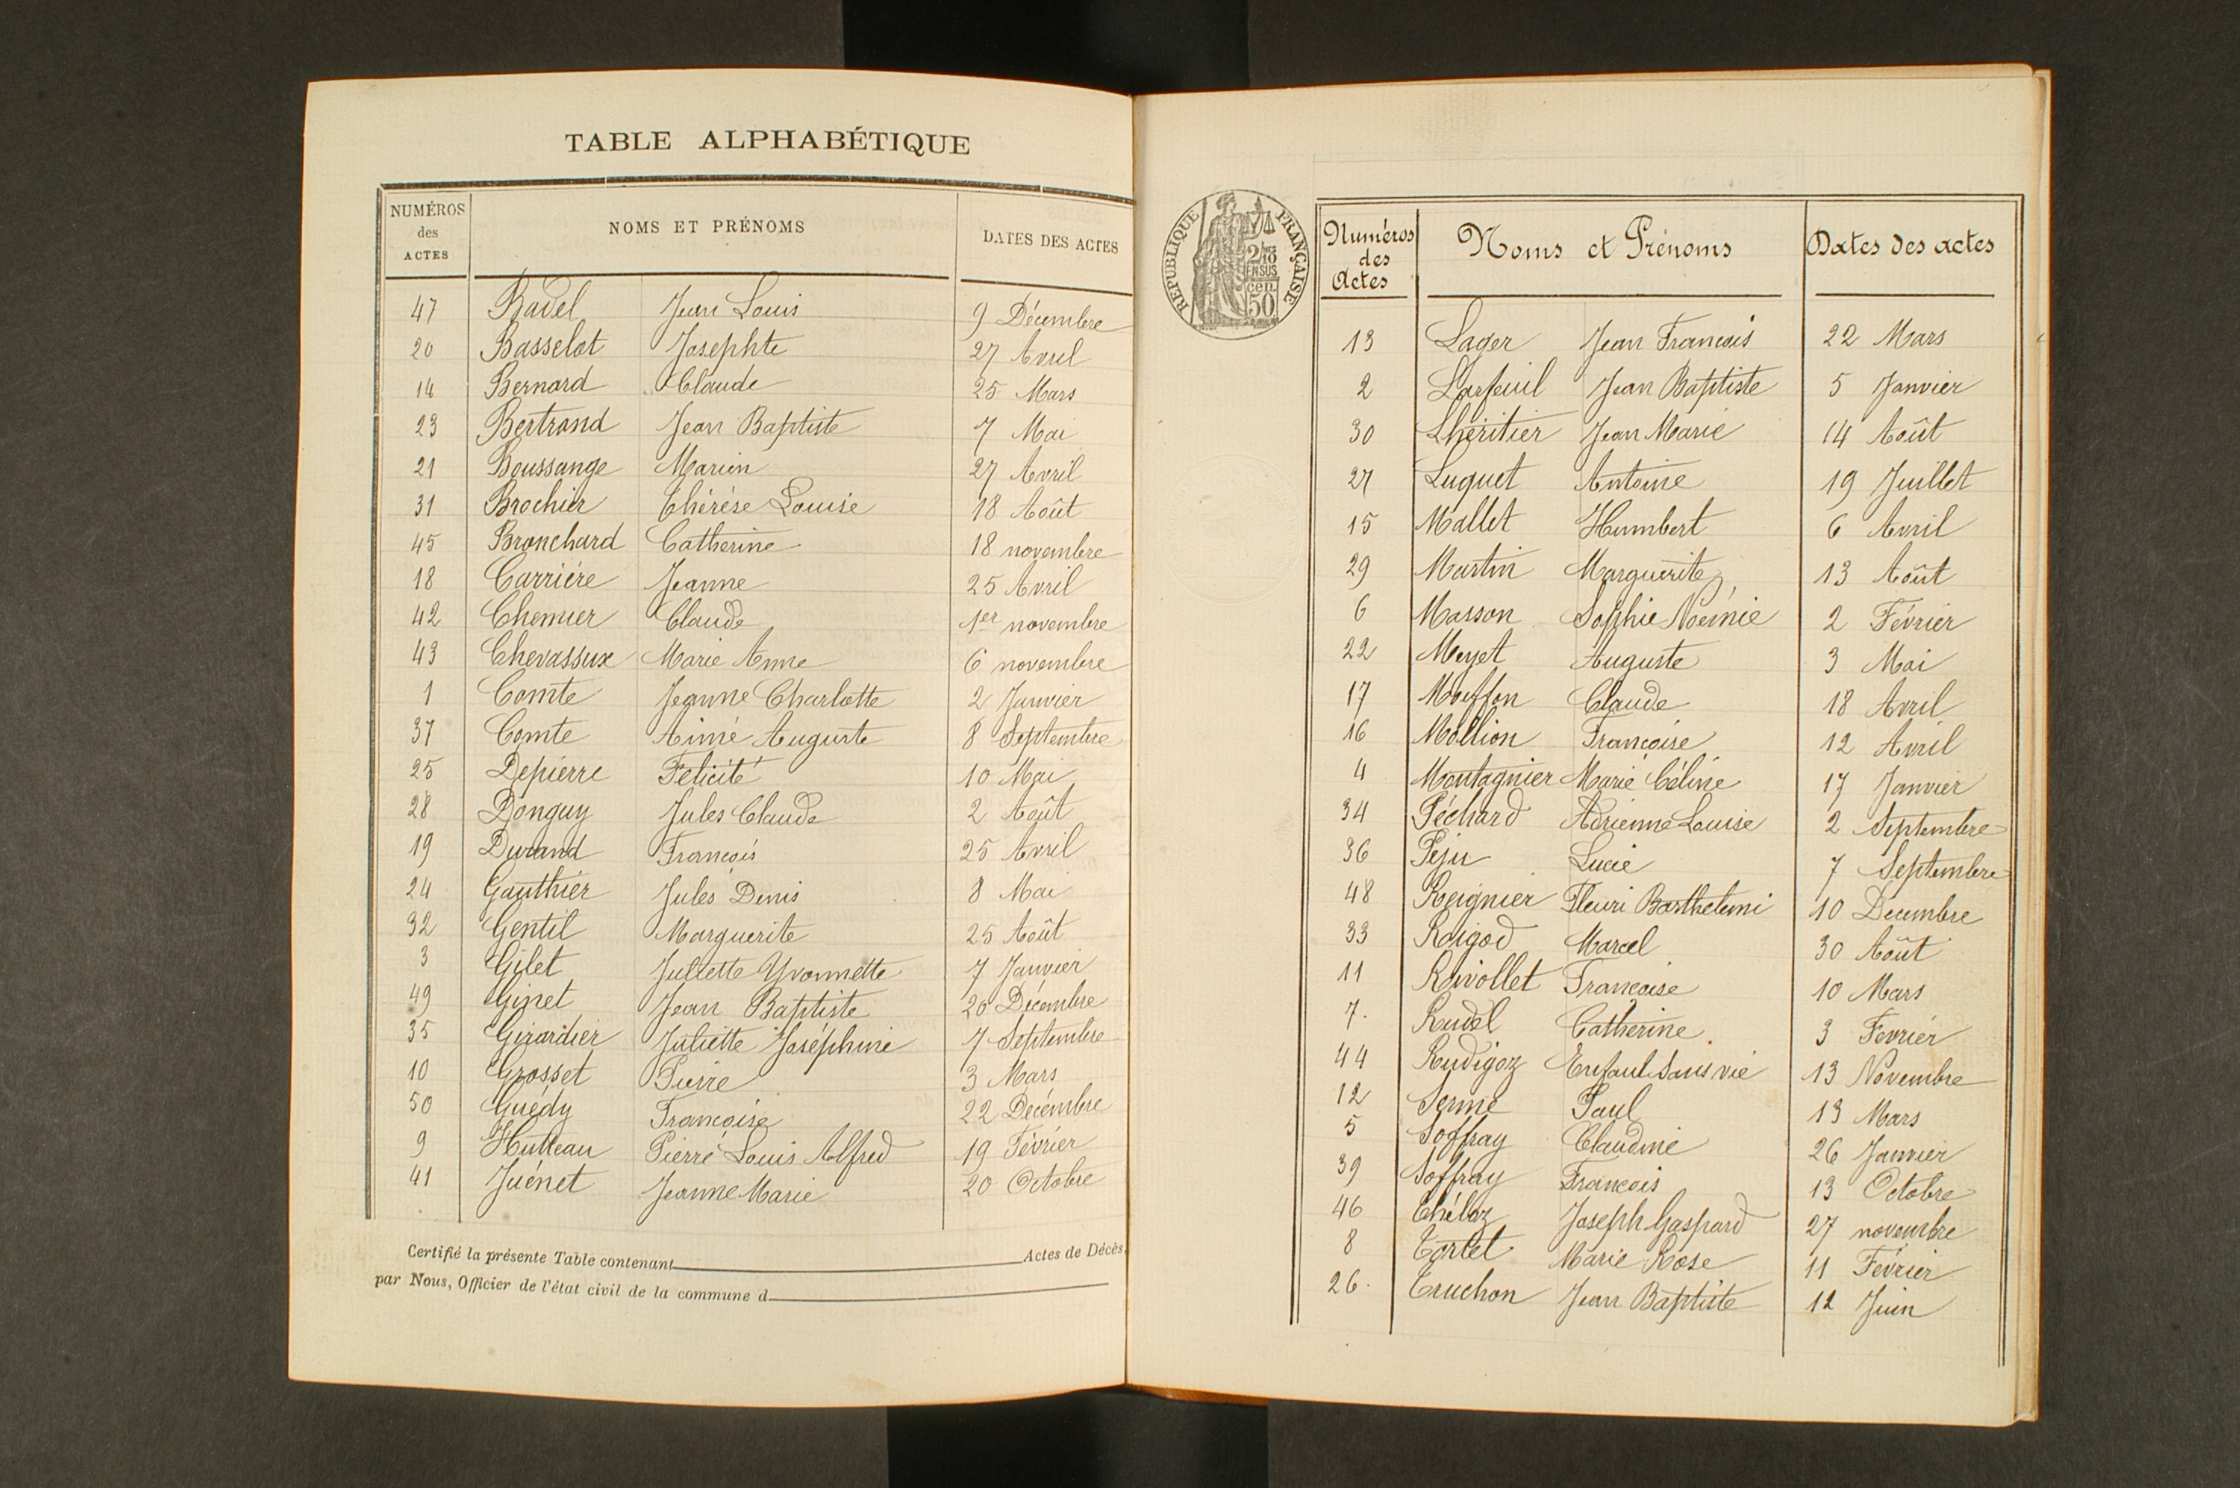 TABLE ALPHABÉTIQUE
NUMÉROS des ACTES NOMS ET PRÉNOMS DATES DES ACTES
47 Badel Jean Louis 9 Décembre
20 Basselot Josephte 27 Avril
14 Bernard Claude 25 Mars
23 Bertrand Jean Baptiste 7 Mai
21 Boussange Marion 27 Avril
31 Brochier Thérèse Louise 18 Août
45 Bronchard Catherine 18 novembre
18 Carrière Jeanne 25 Avril
42 Chemier Claude 1er novembre
43 Chevassux Marie Anne 6 novembre
1 Comte Jeanne Charlotte 2 Janvier
37 Comte Aimé Auguste 8 Septembre
25 Depierre Felicité 10 Mai
28 Donguy Jules Claude 2 Août
19 Durand François 25 Avril
24 Gauthier Jules Denis 8 Mai
32 Gentil Marguerite 25 Août
3 Gilet Juliette Yvonnette 7 Janvier
49 Ginet Jean Baptiste 20 Décembre
35 Girardier Juliette Joséphine 7 Septembre
10 Grosset Pierre 3 Mars
50 Guédy Françoise 22 Decémbre
9 Hutteau Pierre Louis Alfred 19 Février
41 Juénet Jeanne Marie 20 Octobre
Certifié la présente Table contenant Actes de Décès,
par Nous, Officier de l'état civil de la commune d
RÉPUBLIQUE FRANÇAISE
2/10 EN SUS
cen. 50
Numéros des Actes Noms et Prénoms Dates des actes
13 Lager Jean François 22 Mars
2 Larfeuil Jean Baptiste 5 Janvier
30 Lhéritier Jean Marie 14 Août
27 Luquet Antoine 19 Juillet
15 Mallet Humbert 6 Avril
29 Martin Marguerite 13 Août
6 Masson Sophie Noémie 2 Février
22 Meyet Auguste 3 Mai
17 Claude 18 Avril
16 Mollion Françoise 12 Avril
4 Montagnier Marie Céline 17 Janvier
34 Péchard Adrienne Louise 2 Septembre
36 Peju Lucie 7 Septembre
48 Reignier Fleuri Barthelemi 10 Decembre
33 Roigod Marcel 30 Août
11 Rivollet Françoise 10 Mars
7. Rudel Catherine 3 Fevrier
44 Rudigoz Enfant Sans vie 13 Novembre
12 Serme Paul 13 Mars
5 Soffray Claudine 26 Janvier
39 Soffray François 13 Octobre
46 Joseph Gaspard 27 novembre
8 Tortet Marie Rose 11 Février
26. Truchon Jean Baptiste 12 Juin